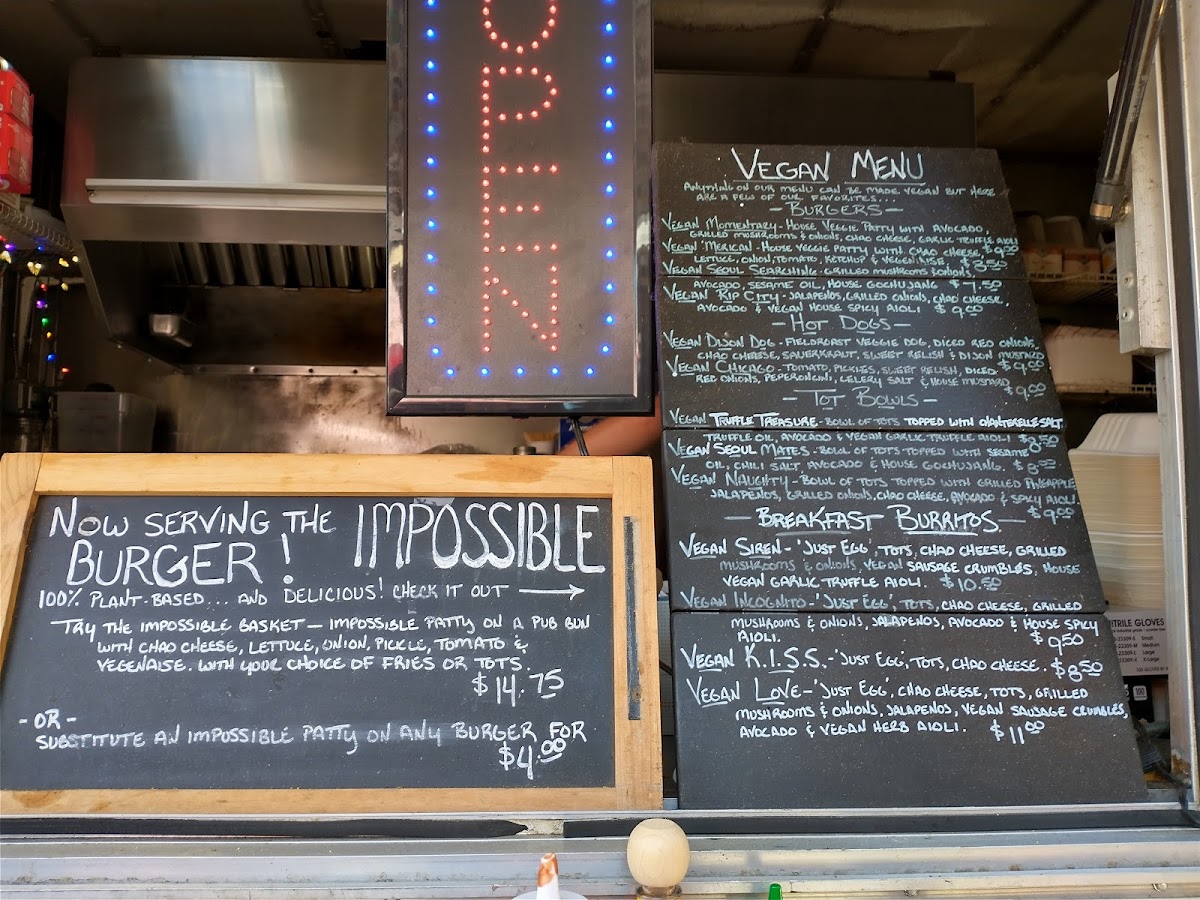 OPEN
NOW SERVING THE IMPOSSIBLE
BURGER!
100% PLANT-BASED... AND DELICIOUS! CHECK IT OUT →
TRY THE IMPOSSIBLE BASKET — IMPOSSIBLE PATTY ON A PUB BUN
WITH CHAO CHEESE, LETTUCE, ONION, PICKLE, TOMATO &
VEGENAISE. WITH YOUR CHOICE OF FRIES OR TOTS.
$14.75
- OR -
SUBSTITUTE AN IMPOSSIBLE PATTY ON ANY BURGER FOR
$4.00
VEGAN MENU
ANYTHING ON OUR MENU CAN BE MADE VEGAN BUT HERE
ARE A FEW OF OUR FAVORITES...
- BURGERS -
VEGAN MOMENTARY - HOUSE VEGGIE PATTY WITH AVOCADO,
GRILLED MUSHROOMS & ONIONS, CHAO CHEESE, GARLIC TRUFFLE AIOLI
VEGAN 'MERICAN - HOUSE VEGGIE PATTY WITH CHAO CHEESE, $9.50
LETTUCE, ONION, TOMATO, KETCHUP & VEGENAISE. $8.50
VEGAN SEOUL SEARCHING - GRILLED MUSHROOMS & ONIONS,
AVOCADO, SESAME OIL, HOUSE GOCHUJANG $7.50
VEGAN RIP CITY - JALAPENOS, GRILLED ONIONS, CHAO CHEESE,
AVOCADO & VEGAN HOUSE SPICY AIOLI $9.00
- HOT DOGS -
VEGAN DIJON DOG - FIELDROAST VEGGIE DOG, DICED RED ONIONS,
CHAO CHEESE, SAUERKRAUT, SWEET RELISH & DIJON MUSTARD
$9.00
VEGAN CHICAGO - TOMATO, PICKLES, SWEET RELISH, DICED
RED ONIONS, PEPERONCINI, CELERY SALT & HOUSE MUSTARD
$9.00
- TOT BOWLS -
VEGAN TRUFFLE TREASURE - BOWL OF TOTS TOPPED WITH CHANTERELLE SALT
TRUFFLE OIL, AVOCADO & VEGAN GARLIC TRUFFLE AIOLI $8.50
VEGAN SEOUL MATES - BOWL OF TOTS TOPPED WITH SESAME
OIL, CHILI SALT, AVOCADO & HOUSE GOCHUJANG.
VEGAN NAUGHTY - BOWL OF TOTS TOPPED WITH GRILLED PINEAPPLE
JALAPENOS, GRILLED ONIONS, CHAO CHEESE, AVOCADO & SPICY AIOLI
$9.00
- BREAKFAST BURRITOS -
VEGAN SIREN - 'JUST EGG', TOTS, CHAO CHEESE, GRILLED
MUSHROOMS & ONIONS, VEGAN SAUSAGE CRUMBLES, HOUSE
VEGAN GARLIC TRUFFLE AIOLI. $10.50
VEGAN INCOGNITO - 'JUST EGG', TOTS, CHAO CHEESE, GRILLED
MUSHROOMS & ONIONS, JALAPENOS, AVOCADO & HOUSE SPICY
AIOLI. $9.50
VEGAN K.I.S.S. - 'JUST EGG', TOTS, CHAO CHEESE. $8.50
VEGAN LOVE - 'JUST EGG', CHAO CHEESE, TOTS, GRILLED
MUSHROOMS & ONIONS, JALAPENOS, VEGAN SAUSAGE CRUMBLES,
AVOCADO & VEGAN HERB AIOLI. $11.00
NITRILE GLOVES
Small
Medium
Large
X-Large
100